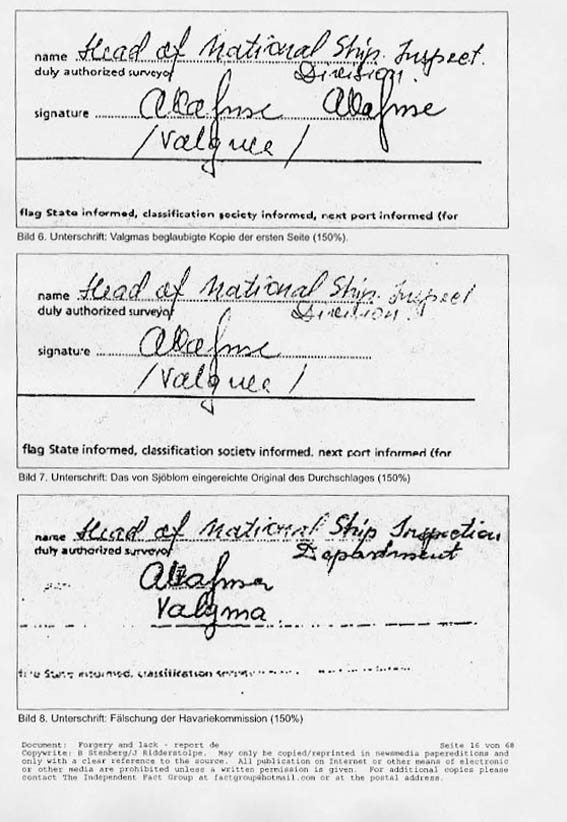 name Head of National Ship. Inspect.
duly authorized surveyor Division.
signature
/Valgma/
flag State informed, classification society informed, next port informed (for
Bild 6. Unterschrift: Valgmas beglaubigte Kopie der ersten Seite (150%).
name Head of National Ship. Inspect
duly authorized surveyor Division
signature
/Valgma/
flag State informed, classification society informed, next port informed (for
Bild 7. Unterschrift: Das von Sjöblom eingereichte Original des Durchschlages (150%)
name Head of National Ship Inspection
duly authorized surveyor Department
Valgma
State informed, classification
Bild 8. Unterschrift: Fälschung der Havariekommission (150%)
Document: Forgery and lack - report de Seite 16 von 68
Copywrite: B Stenberg/J Ridderstolpe. May only be copied/reprinted in newsmedia papereditions and
only with a clear reference to the source. All publication on Internet or other means of electronic
or other media are prohibited unless a written permission is given. For additional copies please
contact The Independent Fact Group at factgroup@hotmail.com or at the postal address.